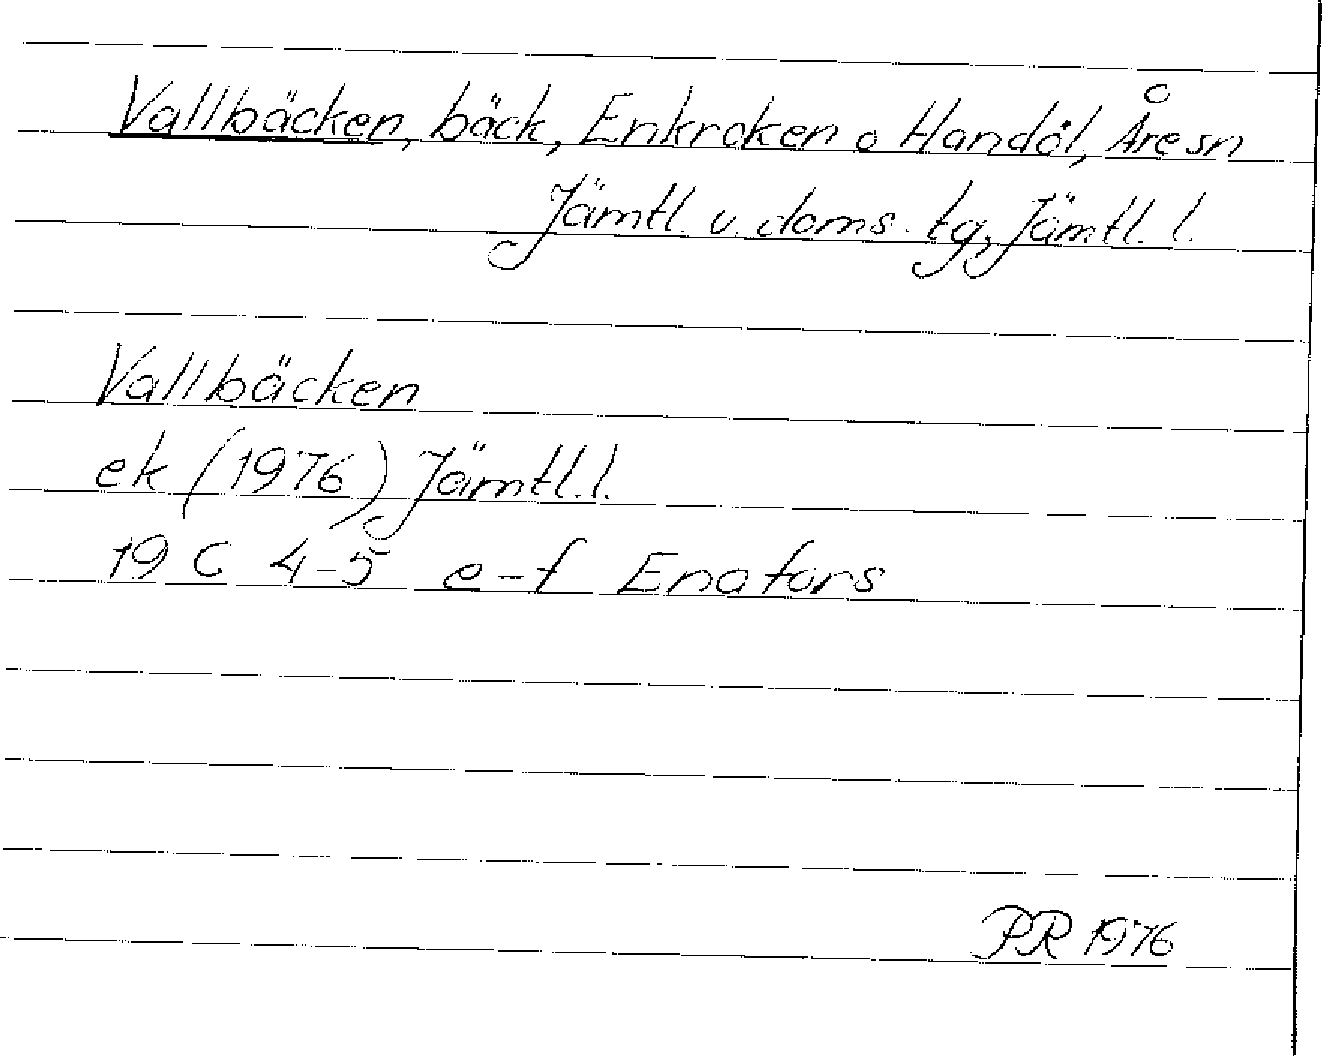 Vallbäcken, bäck, Enkroken o Handöl, Åre sn
Jämtl. v. doms. tg, Jämtl. l.
Vallbäcken
ek (1976) Jämtl. l.
19 C 4-5 e-f Enafors
PR 1976